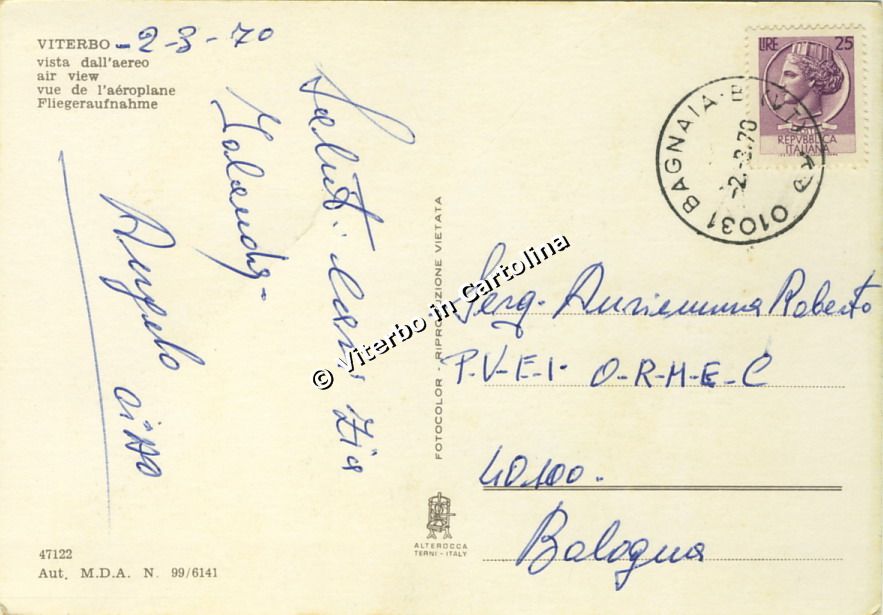 VITERBO -2-3-70
vista dall'aereo
air view
vue de l'aéroplane
Fliegeraufnahme
Saluti Cari Zia
Angelo
47122
Aut. M.D.A. N. 99/6141
FOTOCOLOR - RIPRODUZIONE VIETATA
ALTEROCCA
TERNI - ITALY
© Viterbo in Cartolina
LIRE 25
REPVBBLICA
ITALIANA
01031 BAGNAIA
-2.-3.70
Serg. Auriemma Roberto
P.V.E.I. O-R-M-E-C
40100.
Bologna